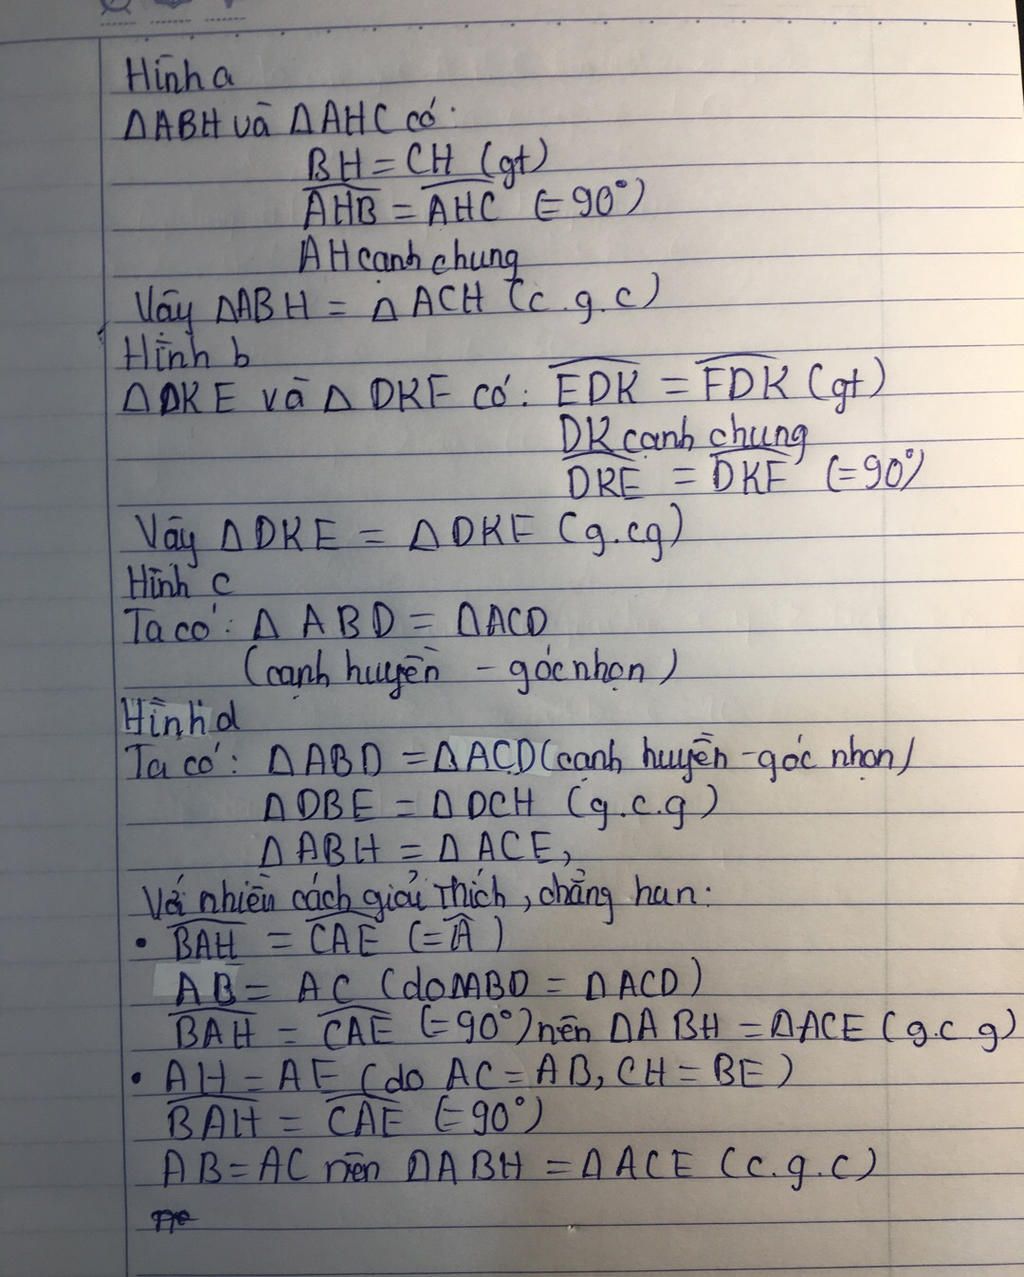 Hình a
ΔABH và ΔAHC có:
BH = CH (gt)
AHB = AHC (=90°)
AH cạnh chung
Vậy ΔABH = ΔACH (c.g.c)
Hình b
ΔDKE và ΔDKF có: EDK = FDK (gt)
DK cạnh chung
DKE = DKF (=90°)
Vậy ΔDKE = ΔDKF (g.cg)
Hình c
Ta có: ΔABD = ΔACD
(cạnh huyền - góc nhọn)
Hình d
Ta có: ΔABD = ΔACD (cạnh huyền - góc nhọn)
ΔDBE = ΔDCH (g.c.g)
ΔABH = ΔACE,
Với nhiều cách giải thích, chẳng hạn:
• BAH = CAE (=Â)
AB = AC (do ΔABD = ΔACD)
BAH = CAE (=90°) nên ΔABH = ΔACE (g.c.g)
• AH = AE (do AC = AB, CH = BE)
BAH = CAE (=90°)
AB = AC nên ΔABH = ΔACE (c.g.c)